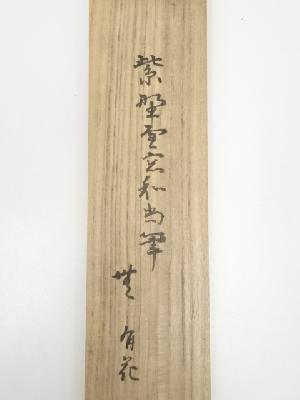 紫野雪窓和尚筆
芳春有花